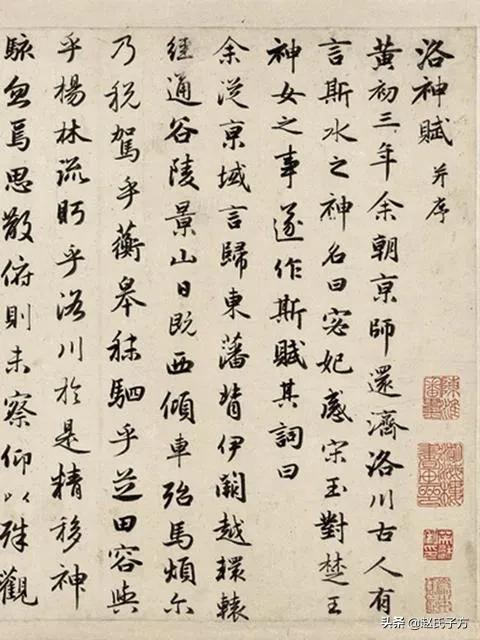 洛神賦 并序
黄初三年余朝京師還濟洛川古人有
言斯水之神名曰宓妃感宋玉對楚王
神女之事遂作斯賦其詞曰
余從京域言歸東藩背伊闕越轘轅
經通谷陵景山日既西傾車殆馬煩尔
乃稅駕乎蘅皋秣駟乎芝田容與
乎楊林流眄乎洛川於是精移神
駭忽焉思散俯則未察仰以殊觀
头条 @赵氏子方